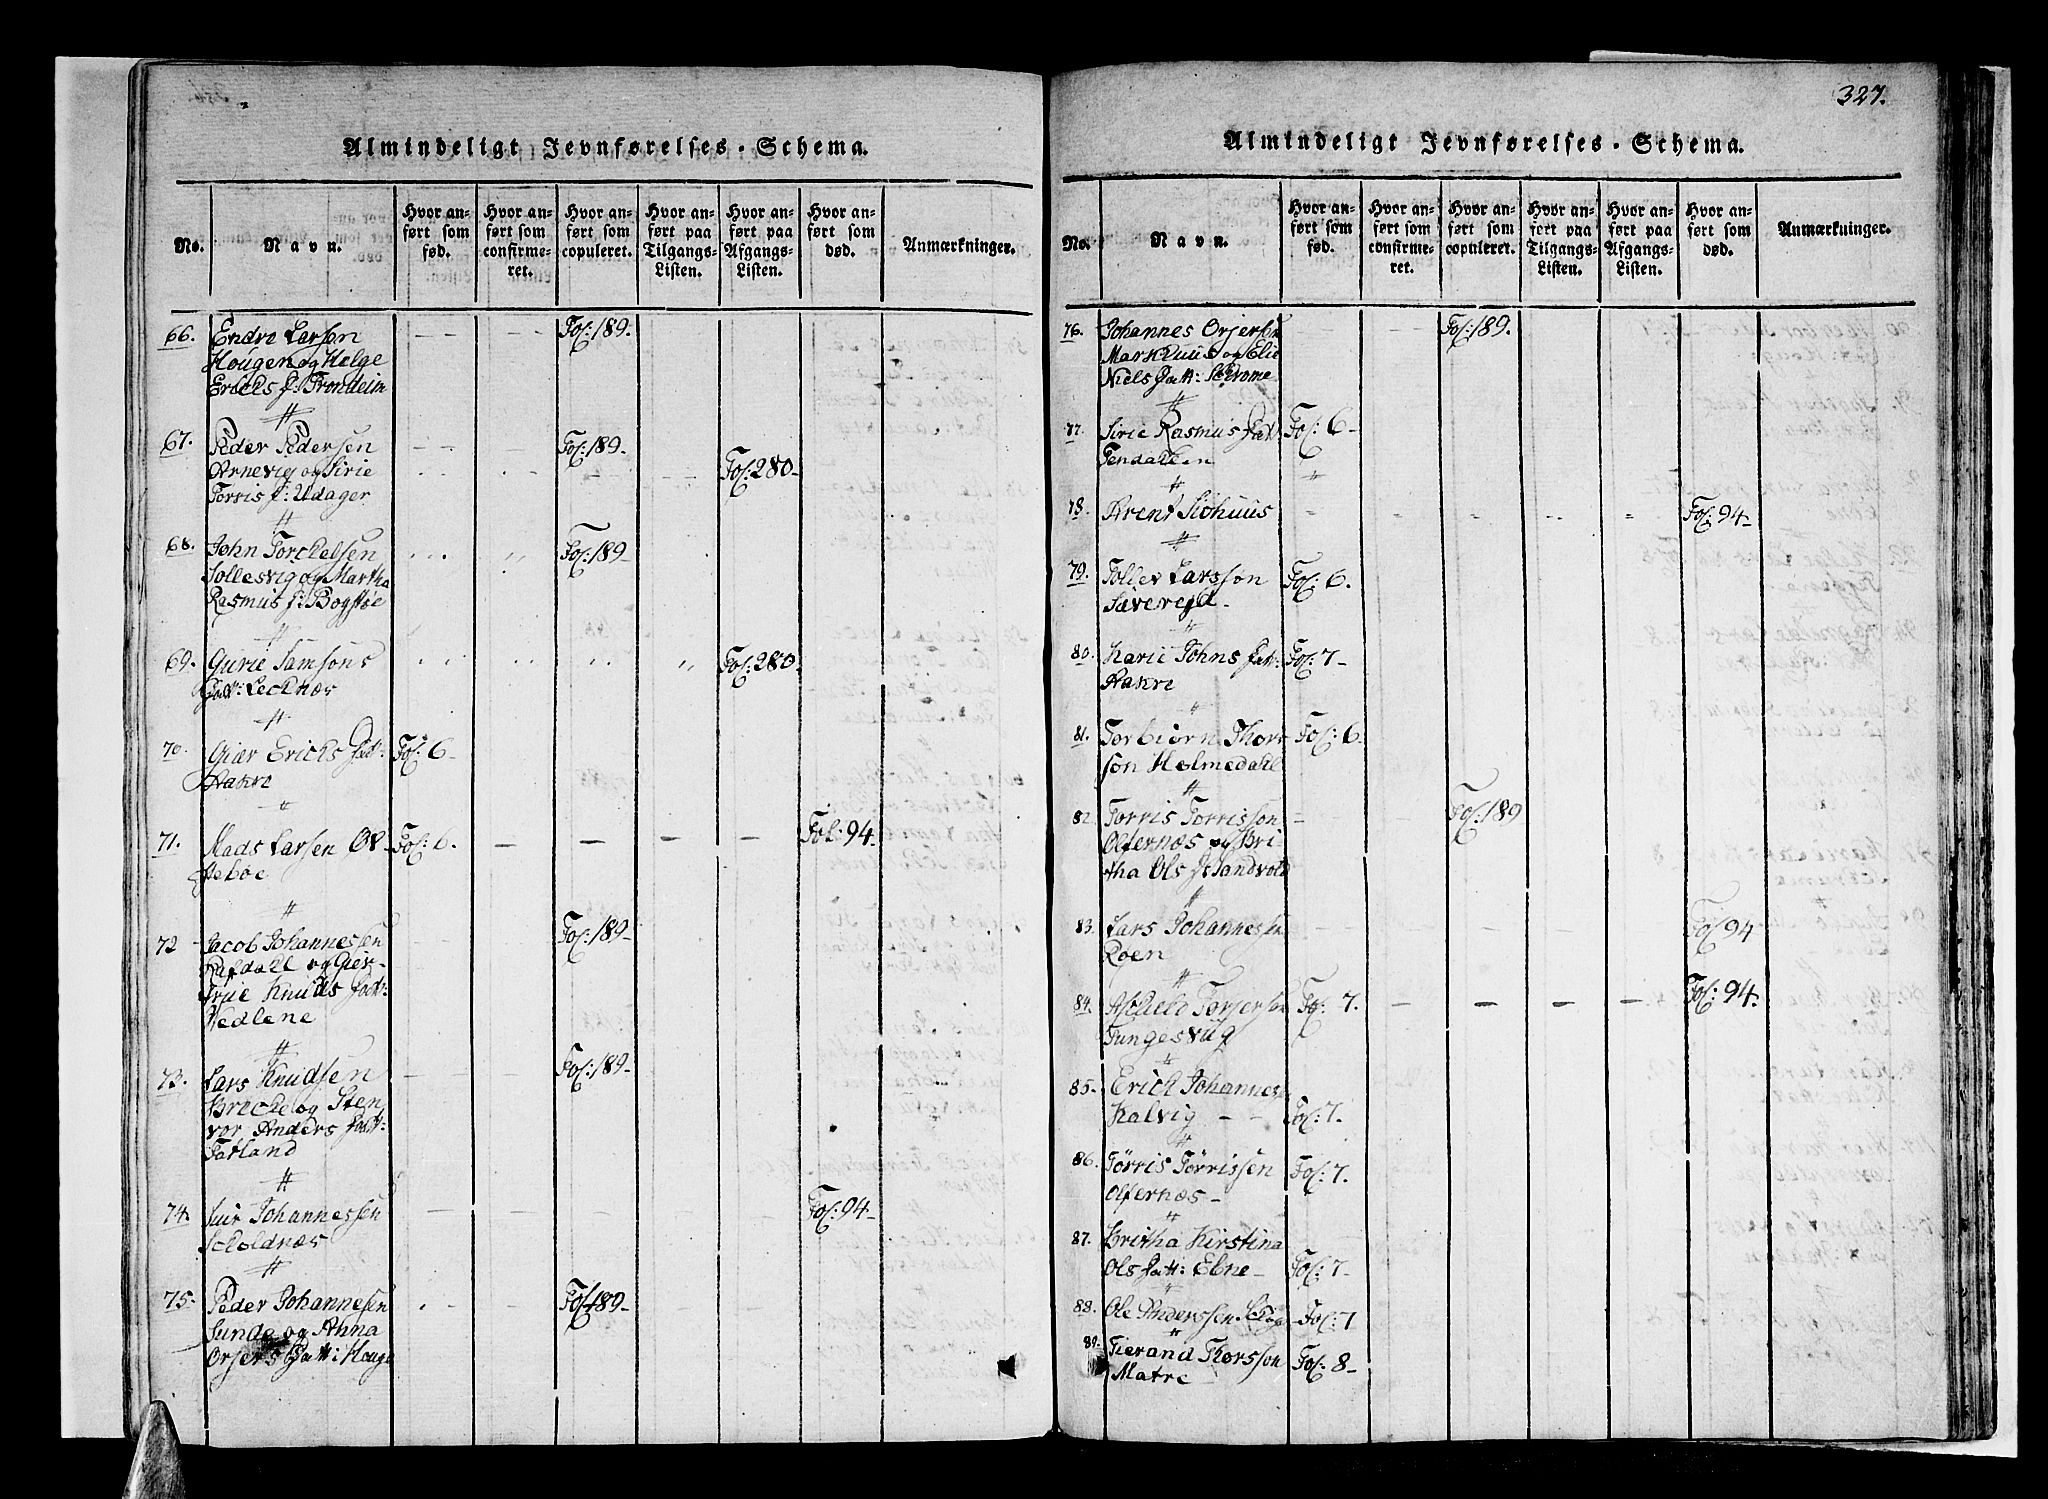 327.
Almindeligt Jevnførelses-Schema.
No.
Navn.
Hvor anført som fød.
Hvor anført som confirmeret.
Hvor anført som copuleret.
Hvor anført paa Tilgangs-Listen.
Hvor anført paa Afgangs-Listen.
Hvor anført som død.
Anmærkninger.
66. Endre Larson Fol: 189.
Hougen og Helge
Ericks f: Trondeim
67. Peder Pedersen Fol: 189-
Arnevig og Sirie Fol: 280-
Torris f: Udager
68. John Torckelsen Fol: 189
Sollesvig og Martha
Rasmus f: Bogstøe
69. Gurie Samsons Fol: 280
Datt: Lecknæs
70. Giær Ericks Datt: Fol: 6-
Aakre
71. Mads Larsen Øl- Fol: 6. Fol: 94-
febøe
72 Jacob Johannessen Fol: 189-
Refdahl og Gier-
true Knuds Datt:
Vedlene
73. Lars Knudsen Fol: 189-
Brecke og Sten
vor Anders Datt:
Fatland
74. Siur Johannessen Fol: 94-
Scholdnæs
75. Peder Johannesen Fol: 189-
Sunde og Anna
Orjers Datt: Houge
Almindeligt Jevnførelses-Schema.
No.
Navn.
Hvor anført som fød.
Hvor anført som confirmeret.
Hvor anført som copuleret.
Hvor anført paa Tilgangs-Listen.
Hvor anført paa Afgangs-Listen.
Hvor anført som død.
Anmærkninger.
76. Johannes Orjerson Fol: 189.
Markhuus og Elie
Niels Datt:
77. Sirie Rasmus Datt: Fol: 6-
Tendalen
78. Arent Siohuus Fol: 94-
79. Toller Larsson Fol: 6.
Sævereid.
80. Karie Johns Datt: Fol: 7-
Aakre
81. Torbiørn Thors Fol: 6.
son Holmedahl
82. Torris Torrisson Fol: 189
Olfernæs og Bri-
tha Ols f: Sandvold
83. Lars Johannessen Fol 94
Roen
84. Torjerson Fol: 7. Fol: 94-
Tungesviig
85. Erick Johannes
Kalvig - - Fol: 7.
86. Tørris Tørrissen Fol: 7.
Olfernæs-
87. Britha Kirstina
Ols Datt: Ebne- Fol: 7-
88. Ole Anderssen Fol: 7
89. Tierand Thorsson Fol: 8-
Matre